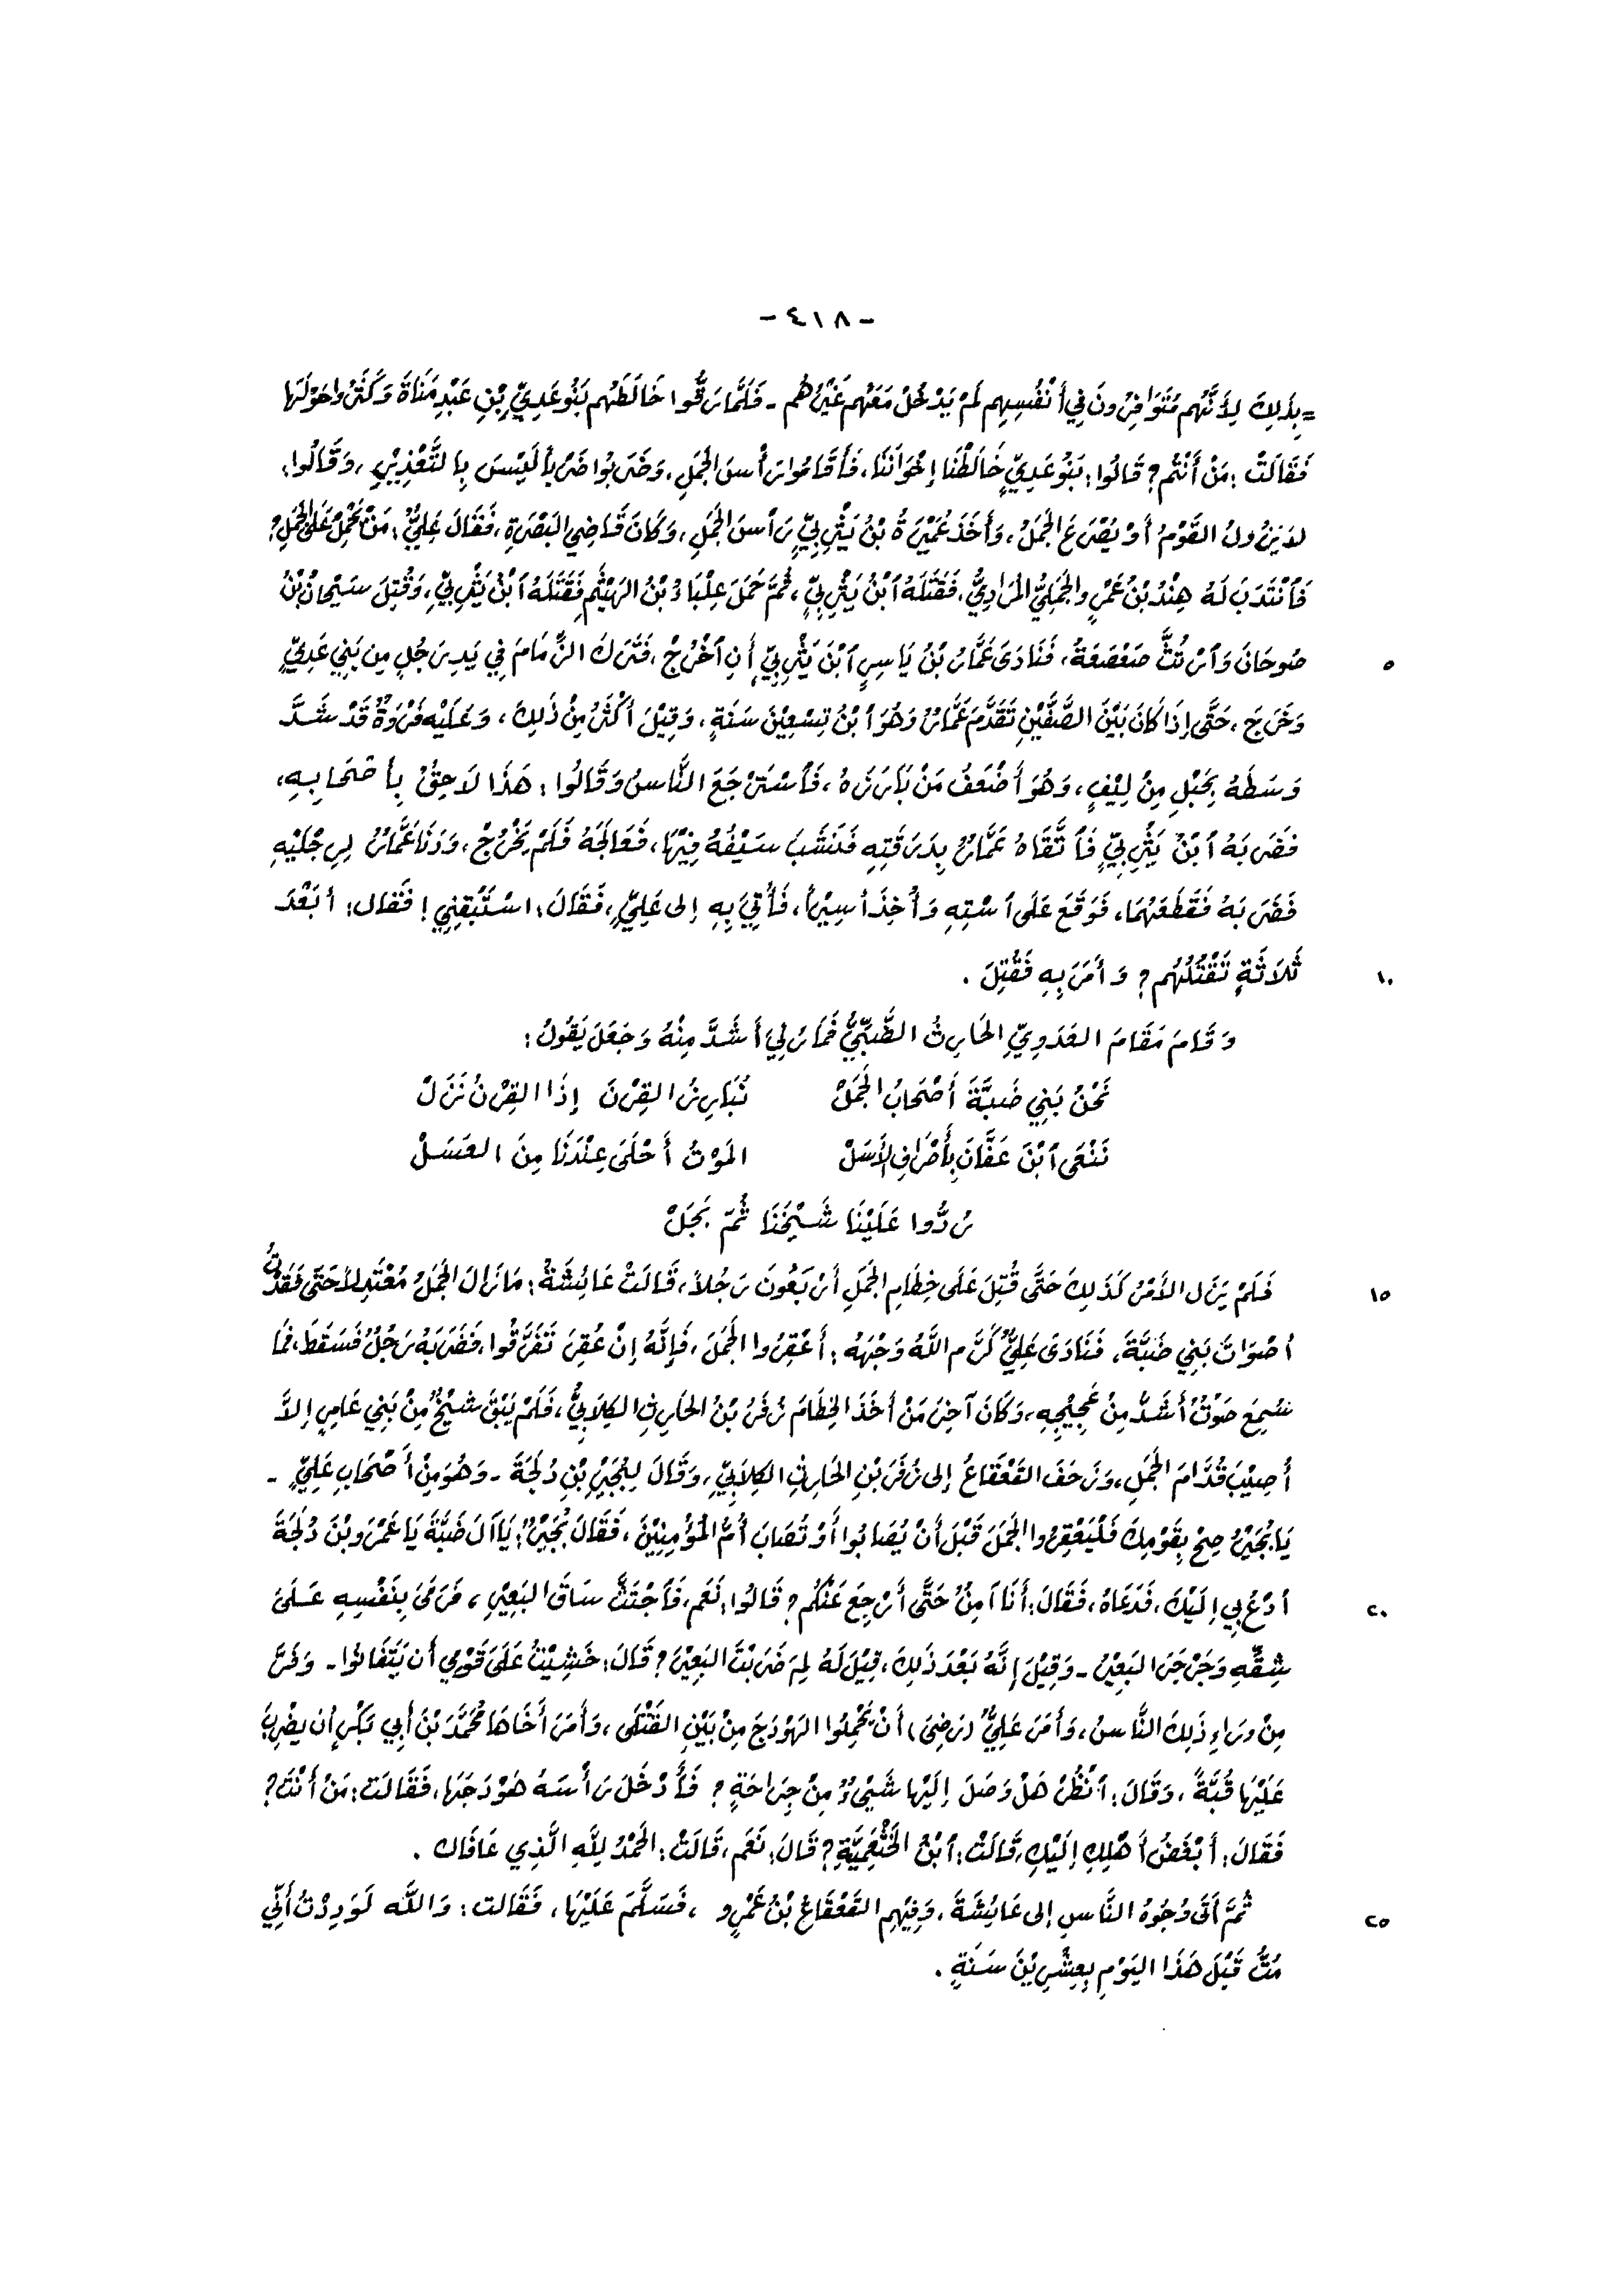 - ٤١٨ -
= بِذَلِكَ لِأَنَّهُم مُتَوَافِرُونَ فِي أَنْفُسِهِم لَمْ يَدْخُلْ مَعَهُم غَيْرُهُم - فَلَمَّا رَقُّوا خَالَطَهُم بَنُو عَدِيِّ بْنِ عَبْدِ مَنَاةَ وَكَثُرُوا حَوْلَهَا
فَقَالَتْ : مَنْ أَنْتُم؟ قَالُوا : بَنُو عَدِيٍّ خَالَطْنَا إِخْوَانَنَا، فَأَقَامُوا رَأْسَ الجَمَلِ، وَضَرَبُوا ضَرْباً لَيْسَ بِالتَّعْذِيْرِ، وَقَالُوا:
لاَ يَزُولُ القَوْمُ أَوْ يُصْرَعَ الجَمَلُ، وَأَخَذَ عُمَيْرَةُ بْنُ يَثْرِبِيٍّ رَأْسَ الجَمَلِ، وَكَانَ قَاضِي البَصْرَةِ، فَقَالَ عَلِيٌّ : مَنْ يَحْمِلُ عَلَى الجَمَلِ؟
فَٱنْتَدَبَ لَهُ هِنْدُ بْنُ عَمْرٍو الجَمَلِيُّ المُرَادِيُّ، فَقَتَلَهُ ٱبْنُ يَثْرِبِيٍّ، ثُمَّ حَمَلَ عِلْبَاءُ بْنُ الهَيْثَمِ فَقَتَلَهُ ٱبْنُ يَثْرِبِيٍّ، وَقُتِلَ سَيْحَانُ بْنُ
صُوحَانَ وَٱرْتُثَّ صَعْصَعَةُ، فَنَادَى عَمَّارُ بْنُ يَاسِرٍ ٱبْنَ يَثْرِبِيٍّ أَنِ ٱخْرُجْ، فَتَرَكَ الزِّمَامَ فِي يَدِ رَجُلٍ مِن بَنِي عَدِيٍّ ٥
وَخَرَجَ، حَتَّى إِذَا كَانَ بَيْنَ الصَّفَّيْنِ تَقَدَّمَ عَمَّارُ وَهُوَ ٱبْنُ تِسْعِيْنَ سَنَةٍ، وَقِيْلَ أَكْثَرُ مِنْ ذَلِكَ، وَعَلَيْهِ فَرْوَةٌ قَدْ شَدَّ
وَسَطَهُ بِحَبْلٍ مِنْ لِيْفٍ، وَهُوَ أَضْعَفُ مَنْ بَارَزَهُ، فَٱسْتَرْجَعَ النَّاسُ وَقَالُوا : هَذَا لاَحِقٌ بِأَصْحَابِهِ،
فَضَرَبَهُ ٱبْنُ يَثْرِبِيٍّ فَٱتَّقَاهُ عَمَّارٌ بِدَرَقَتِهِ فَنَشَبَ سَيْفُهُ فِيْهَا، فَعَالَجَهُ فَلَمْ يَخْرُجْ، وَدَنَا عَمَّارٌ لِرِجْلَيْهِ
فَضَرَبَهُ فَقَطَعَهُمَا، فَوَقَعَ عَلَى ٱسْتِهِ وَأُخِذَ أَسِيْراً، فَأُتِيَ بِهِ إلى عَلِيٍّ، فَقَالَ : اسْتَبْقِنِي ! فَقَال : أَبَعْدَ
ثَلاَثَةٍ تَقْتُلُهُم؟ وَأَمَرَ بِهِ فَقُتِلَ . ١٠
وَقَامَ مَقَامَ العَدَوِيِّ الحَارِثُ الضَّبِّيُّ فَمَا رُئِيَ أَشَدَّ مِنْهُ وَجَعَلَ يَقُولُ :
نَحْنُ بَنِي ضَبَّةَ أَصْحَابُ الجَمَلْ نُبَارِزُ القِرْنَ إِذَا القِرْنُ نَزَلْ
نَنْعَى ٱبْنَ عَفَّانَ بِأَطْرَافِ الأَسَلْ المَوْتُ أَحْلَى عِنْدَنَا مِنَ العَسَلْ
رُدُّوا عَلَيْنَا شَيْخَنَا ثُمَّ بَجَلْ
فَلَمْ يَزَلِ الأَمْرُ كَذَلِكَ حَتَّى قُتِلَ عَلَى خِطَامِ الجَمَلِ أَرْبَعُونَ رَجُلاً، قَالَتْ عَائِشَةُ : مَا زَالَ الجَمَلُ مُعْتَدِلاً حَتَّى فَقَدْتُ ١٥
أَصْوَاتَ بَنِي ضَبَّةَ. فَنَادَى عَلِيٌّ كَرَّم اللَّهُ وَجْهَهُ : أَعْقِرُوا الجَمَلَ، فَإِنَّهُ إِنْ عُقِرَ تَفَرَّقُوا، فَضَرَبَهُ رَجُلٌ فَسَقَطَ، فَمَا
سُمِعَ صَوْتٌ أَشَدُّ مِنْ عَجِيْجِهِ، وَكَانَ آخِرَ مَنْ أَخَذَ الخِطَامَ زُفَرُ بْنُ الحَارِثِ الكِلاَبِيُّ، فَلَمْ يَبْقَ شَيْخٌ مِنْ بَنِي عَامِرٍ إِلاَّ
أُصِيْبَ قُدَّامَ الجَمَلِ، وَزَحَفَ القَعْقَاعُ إلى زُفَرَ بْنِ الحَارِثِ الكِلاَبِيِّ، وَقَالَ لِبُجَيْرِ بْنِ دُلْجَةَ - وَهُوَ مِنْ أَصْحَابِ عَلِيٍّ -
يَا بُجَيْرُ صِحْ بِقَوْمِكَ فَلْيَعْقِرُوا الجَمَلَ قَبْلَ أَنْ يُصَابُوا أَوْ تُصَابَ أُمُّ المُؤْمِنِيْنَ، فَقَالَ بُجَيْرٌ : يَاٱلَ ضَبَّةَ يَا عَمْرَو بْنَ دُلْجَةَ
ٱدْعُ بِي إِلَيْكَ، فَدَعَاهُ، فَقَالَ : أَنَا آمِنٌ حَتَّى أَرْجِعَ عَنْكُم؟ قَالُوا : نَعَم، فَٱجْتَثَّ سَاقَ البَعِيْرِ، فَرَمَى بِنَفْسِهِ عَلَى ٢٠
شِقِّهِ وَجَرْجَرَ البَعِيْرُ - وَقِيْلَ إِنَّهُ بَعْدَ ذَلِكَ، قِيْلَ لَهُ لِمَ ضَرَبْتَ البَعِيْرَ؟ قَالَ : خَشِيْتُ عَلَى قَوْمِي أَن يَتَفَانَوْا - وَفَرَّ
مِنْ وَرَاءِ ذَلِكَ النَّاسُ، وَأَمَرَ عَلِيٌّ (رَضِيَ) أَنْ يَحْمِلُوا الهَوْدَجَ مِنْ بَيْنِ القَتْلَى، وَأَمَرَ أَخَاهَا مُحَمَّدَ بْنَ أَبِي بَكْرٍ أَن يَضْرِبَ
عَلَيْهَا قُبَّةً، وَقَالَ : ٱنْظُرْ هَلْ وَصَلَ إِلَيْهَا شَيْءٌ مِنْ جِرَاحَةٍ؟ فَأَدْخَلَ رَأْسَهُ هَوْدَجَهَا، فَقَالَت : مَنْ أَنْتَ؟
فَقَالَ : أَبْغَضُ أَهْلِكِ إِلَيْكِ، قَالَتْ : ٱبْنُ الخَثْعَمِيَّةِ؟ قَالَ : نَعَم، قَالَتْ : الحَمْدُ لِلَّهِ الَّذِي عَافَاكَ .
ثُمَّ أَتَى وُجُوهُ النَّاسِ إلى عَائِشَةَ، وَفِيْهِم القَعْقَاعُ بْنُ عَمْرٍو ، فَسَلَّمَ عَلَيْهَا، فَقَالت : وَاللَّهِ لَوَدِدْتُ أَنِّي ٢٥
مُتُّ قَبْلَ هَذَا اليَوْمِ بِعِشْرِيْنَ سَنَةٍ .